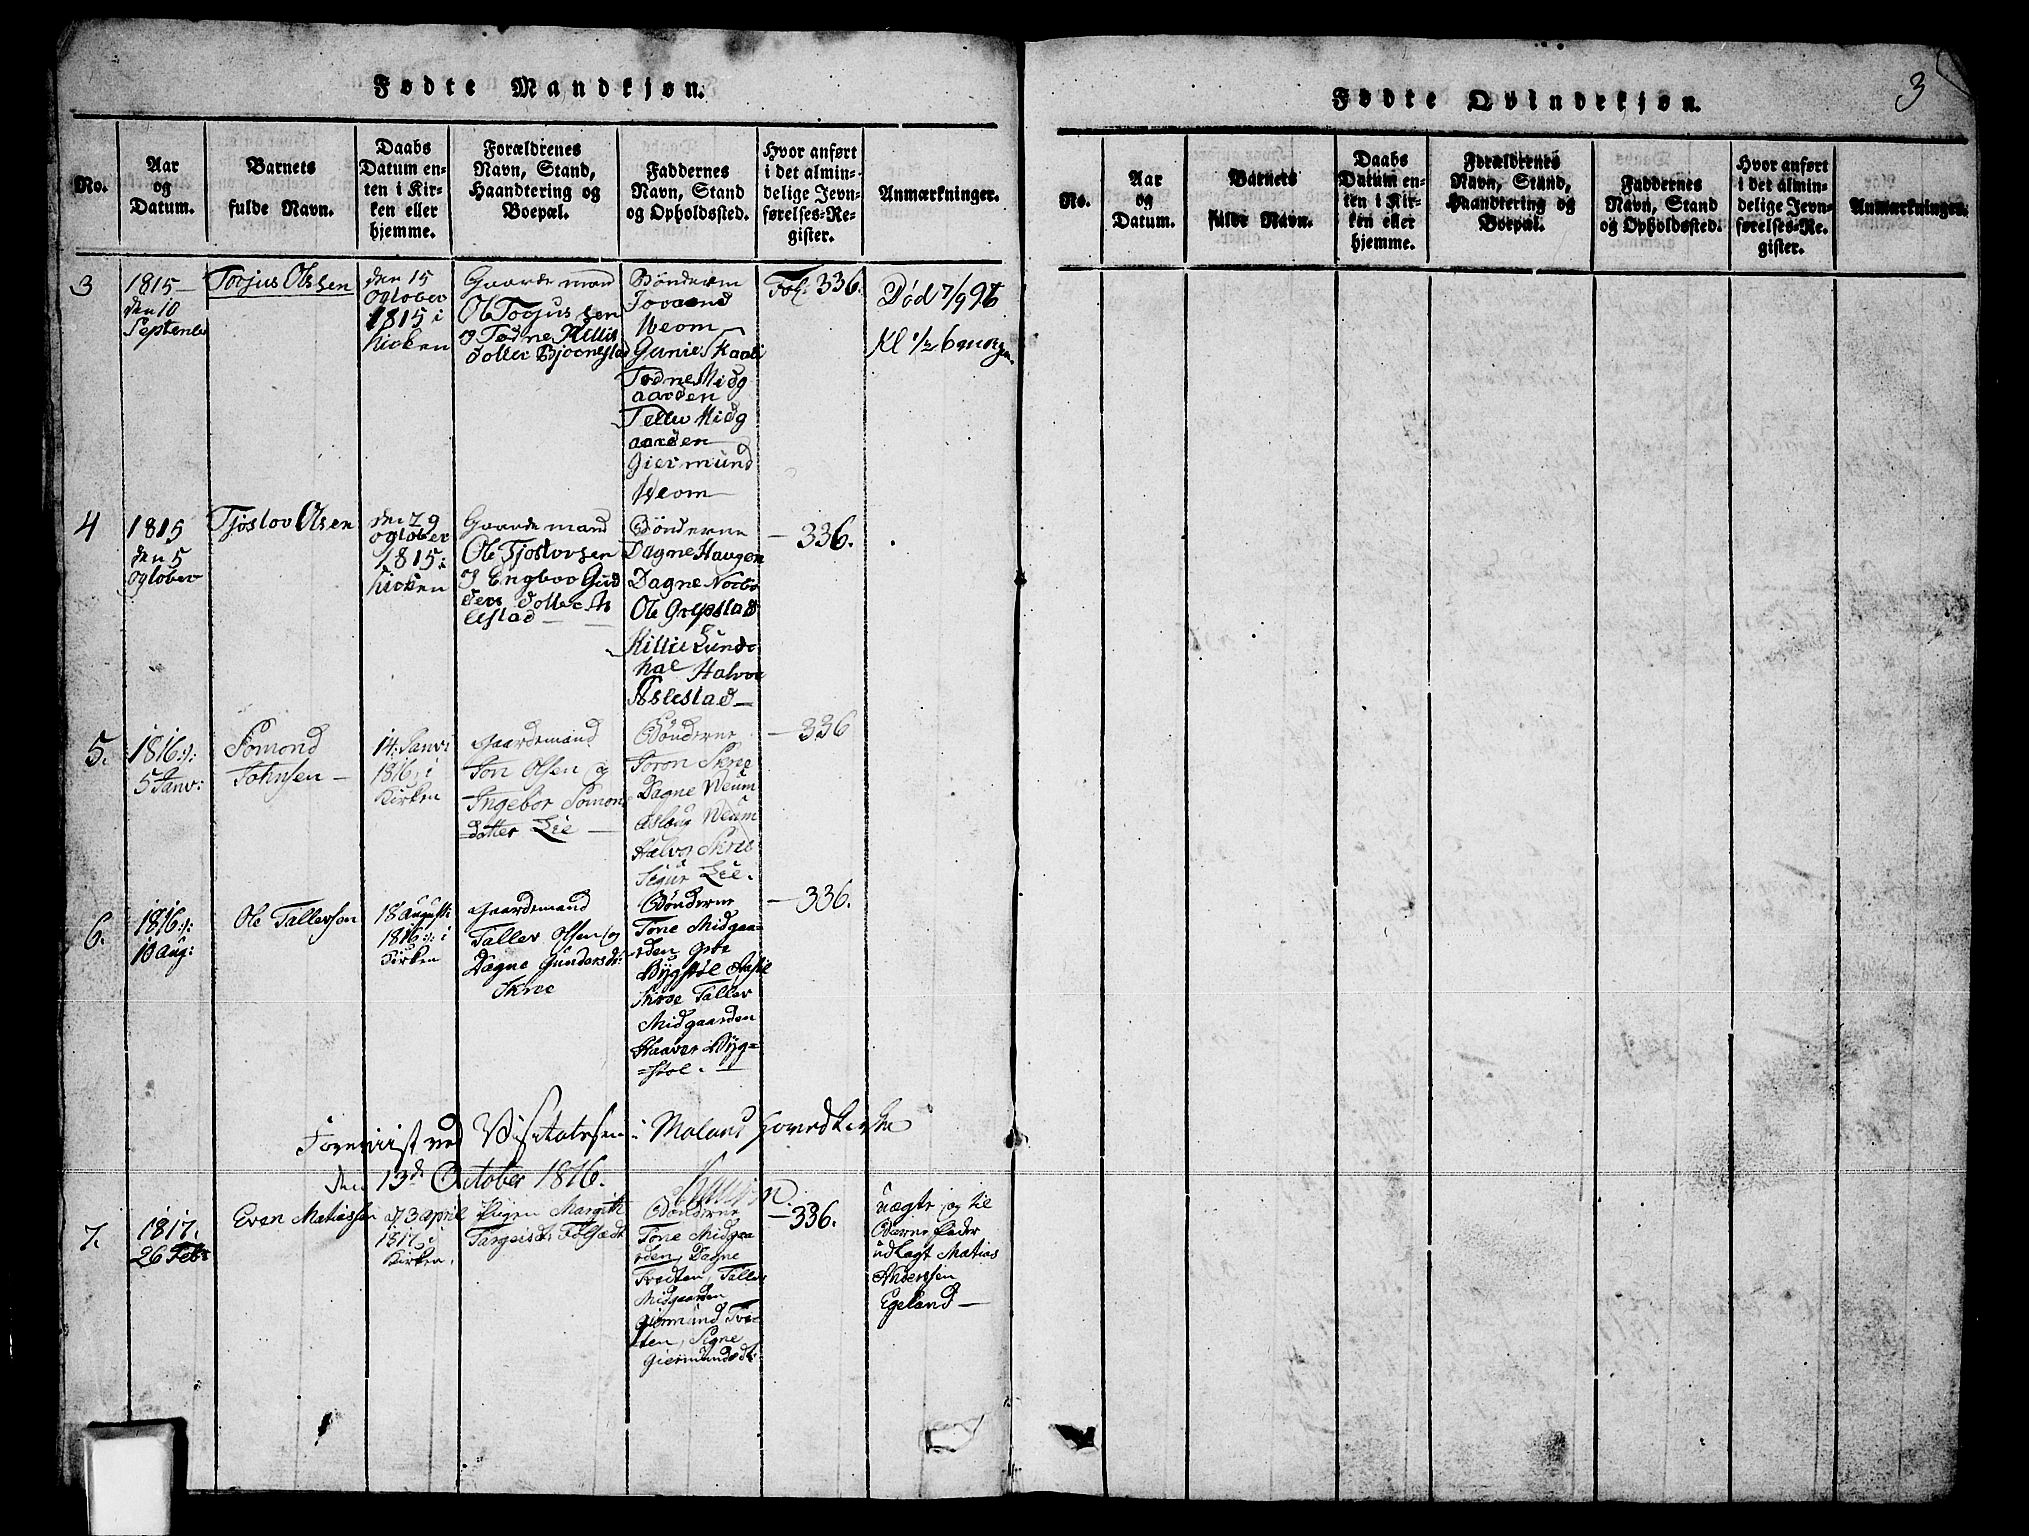 Fødte Mandkjøn.
No.
Aar
og
Datum.
Barnets
fulde Navn.
Daabs
Datum en-
ten i Kir-
ken eller
hjemme.
Forældrenes
Navn, Stand,
Haandtering og
Boepæl.
Faddernes
Navn, Stand
og Opholdssted.
Hvor anført
i det almin-
delige Jevn-
førelses-Re-
gister.
Anmærkninger.
3
1815
den 10
September
Torjus Olssen
den 15
ogtober
1815 i
kirken
Gaardemand
Ole Torjussen
og Todne Killis
dotter Bjornestad
Bønderne
Jovand
Neom
Gunie Skaali
Todne Midg
aarden
Tellev Midg
aarden
Giermund
Neom
Fol. 336.
Død 7/9 96
Kl 1/2 6 morgen
4
1815
den 5
ogtober
Tjoslov Olsen
den 29
ogtober
1815 i
kirken
Gaardemand
Ole Tjostovsen
og Engbor Gud
ders dotter As
elstad
Bønderne
Dagne Haugen
Dagne Norbø
Ole Grepstad
Killie Lunde
Halvor
Aslestad
336.
5.
1816
5 Janv:
Somond
Johnsen
14 Janv:
1816 i
Kirken
Gaardemand
Jon Olsen og
Ingebor Somon
dotter Lie
Bønderne
Joron Skree
Dagne Neum
Aslaug Neum
Halvor Skree
Sigur Lie.
336
6.
1816
10 Aug:
Ole Tallevsen
18 august:
1816 i
Kirken
Gaardemand
Tallev Olsen og
Dagne Gundersd:
Skree
Bønderne
Tone Midgaa-
rden
Bygstøl
Skree Tallev
Midgaarden
Haaver Byg-
støl.
336.
Foreviist ved Visitatsen i Moland hovedkirke
den 13de October 1816.
7.
1817.
26 Febr
Even Matiassen
d 3 april
1817 i
Kirken
Pigen Margith
Targeisd: Folsædt
Bønderne
Tone Midgaa-
rden, Dagne
Tvedten, Tallev
Midgaarden
Giermund Tve-
ten, Signe
Giermundsdt:
336.
uægte og til
Barnefader
udlagt Matias
Anderssen
Egeland
Fødte Qvindekjøn.
3
No.
Aar
og
Datum.
Barnets
fulde Navn.
Daabs
Datum en-
ten i Kir-
ken eller
hjemme.
Forældrenes
Navn, Stand,
Haandtering og
Boepæl.
Faddernes
Navn, Stand
og Opholdssted.
Hvor anført
i det almin-
delige Jevn-
førelses-Re-
gister.
Anmærkninger.